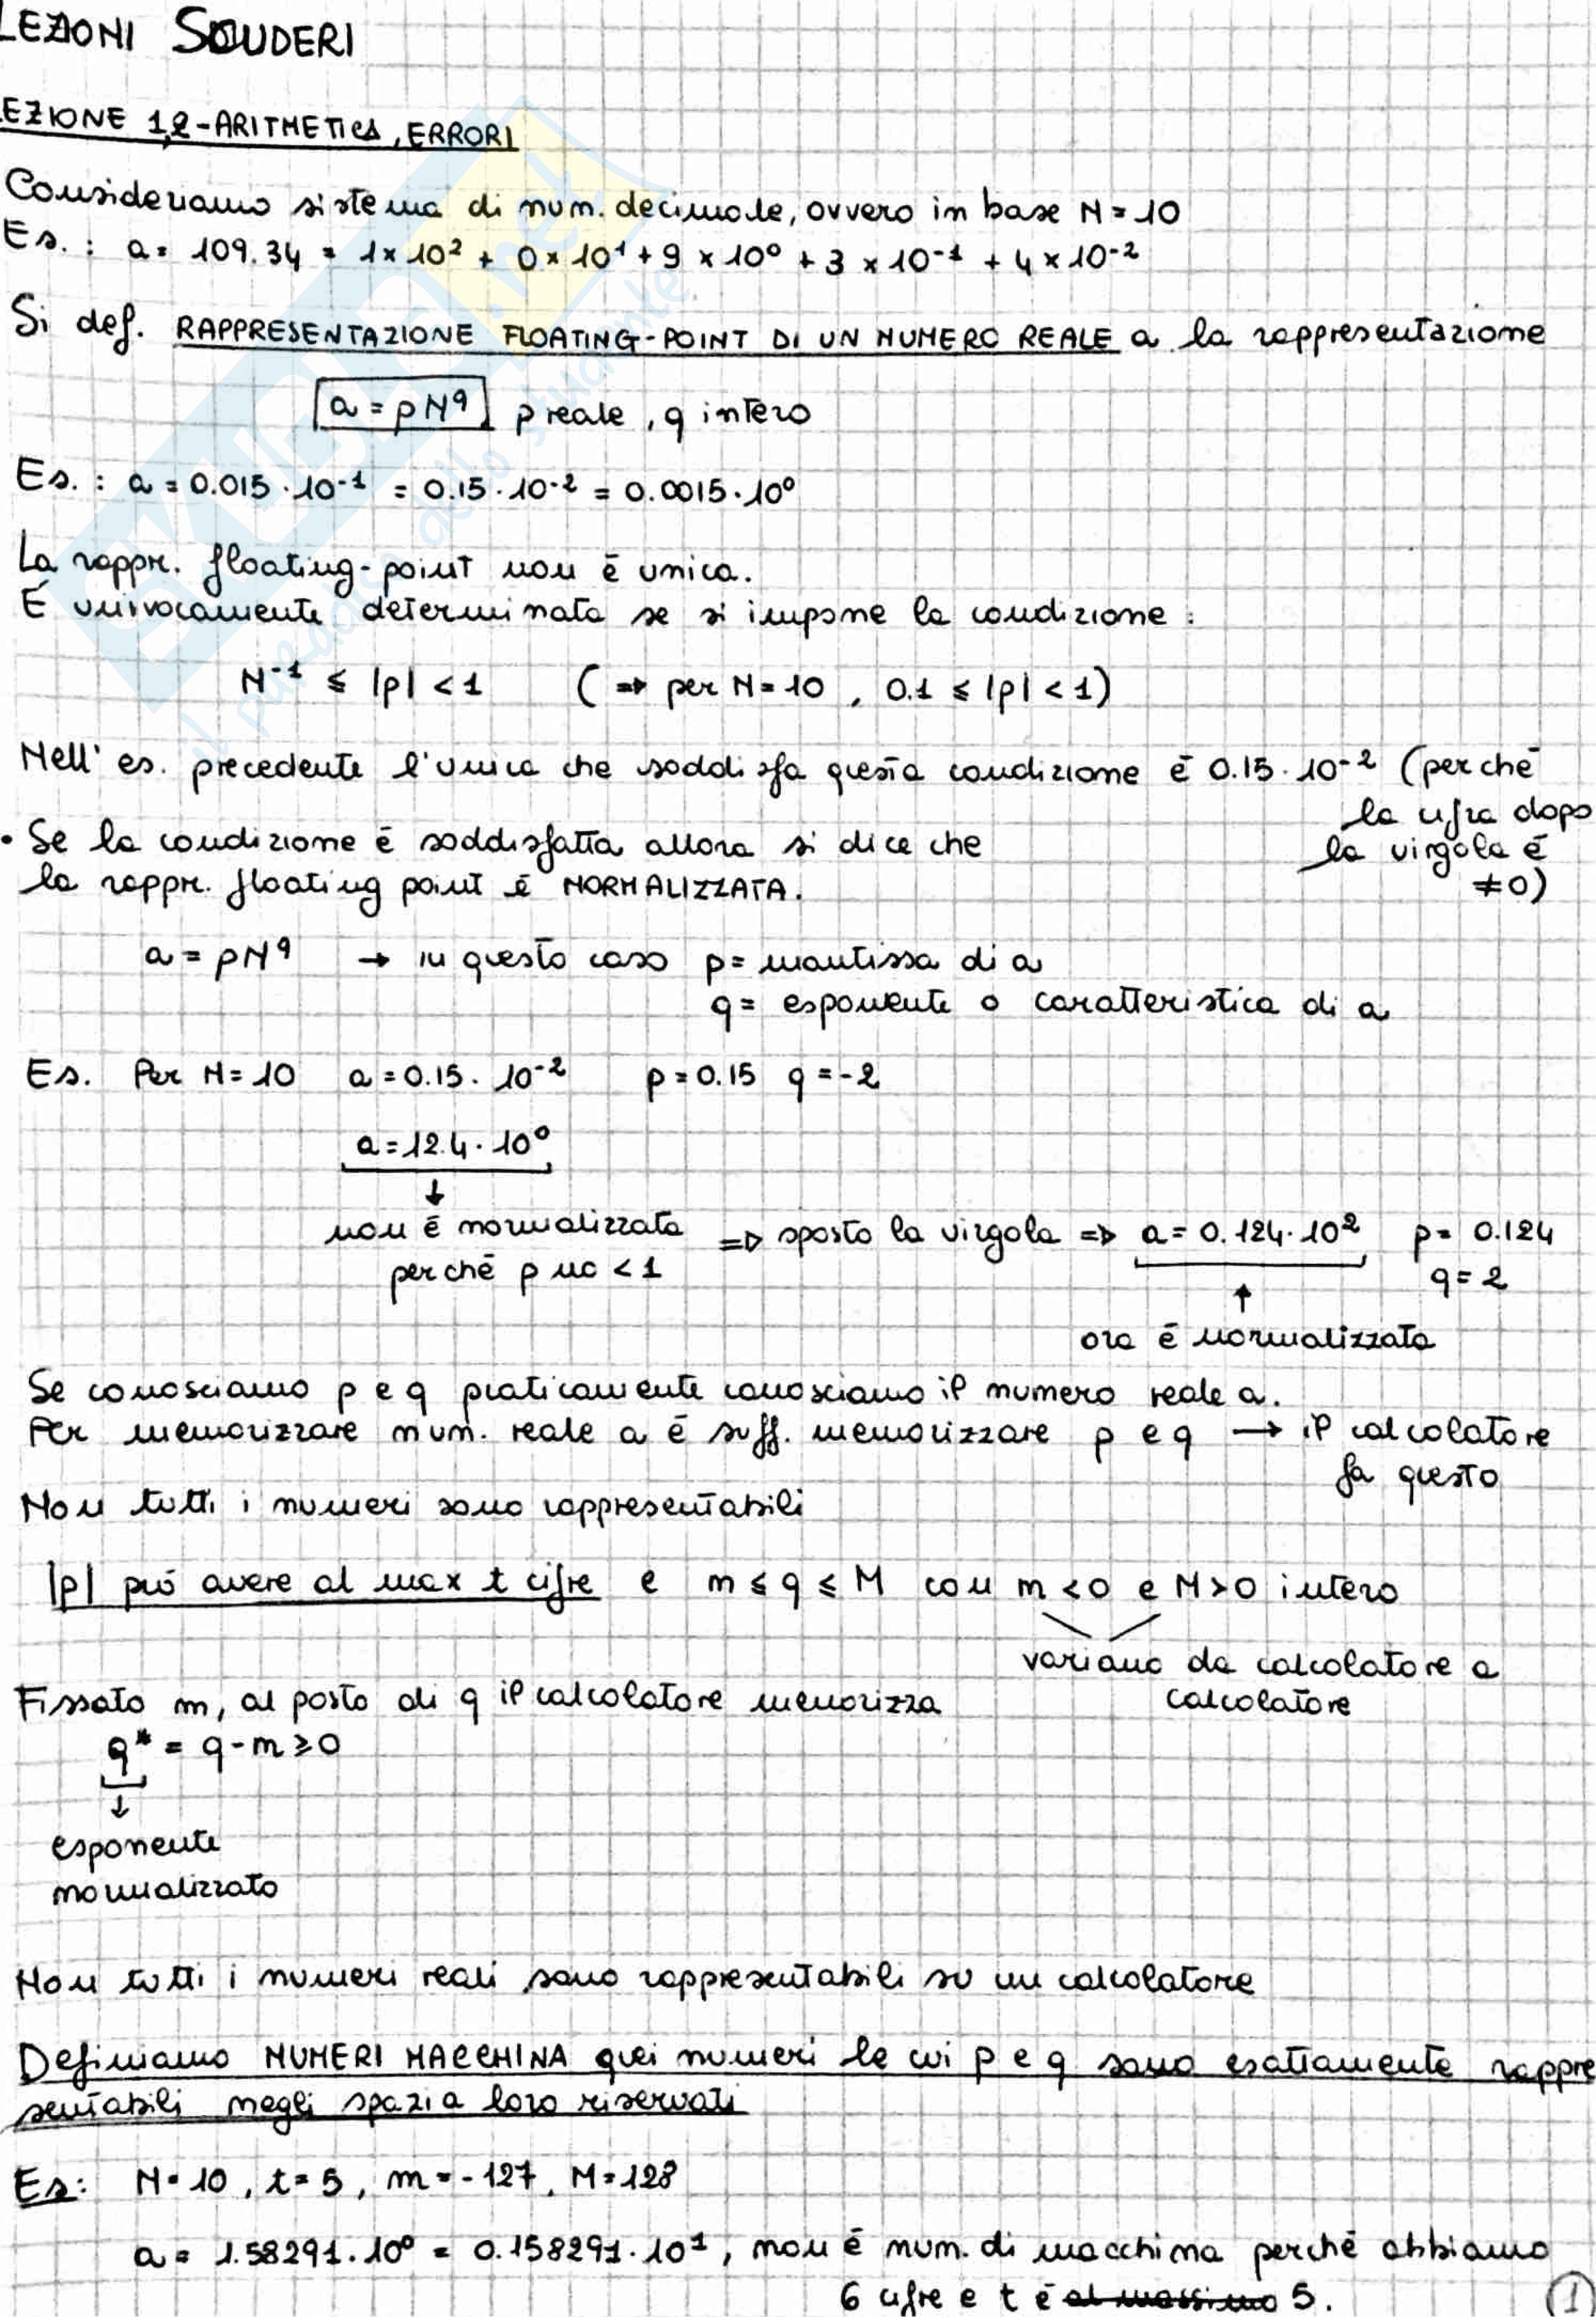 LEZIONI SCUDERI
LEZIONE 1,2-ARITMETICA, ERRORI
Consideriamo sistema di num. decimale, ovvero in base N=10
Es.: a= 109.34 = 1×10² + 0×10¹ + 9×10⁰ + 3×10⁻¹ + 4×10⁻²
Si def. RAPPRESENTAZIONE FLOATING-POINT DI UN NUMERO REALE a la rappresentazione
a = pN^q p reale, q intero
Es.: a = 0.015·10⁻¹ = 0.15·10⁻² = 0.0015·10⁰
La rappr. floating-point non è unica.
È univocamente determinata se si impone la condizione:
N⁻¹ ≤ |p| < 1 (⇒ per N=10, 0.1 ≤ |p| < 1)
Nell' es. precedente l'unica che soddisfa questa condizione è 0.15·10⁻² (perché
la cifra dopo
la virgola è
≠0)
• Se la condizione è soddisfatta allora si dice che
la rappr. floating point è NORMALIZZATA.
a = pN^q → in questo caso p= mantissa di a
q= esponente o caratteristica di a
Es. Per N=10 a=0.15·10⁻² p=0.15 q=-2
a=12.4·10⁰
↓
non è normalizzata ⇒ sposto la virgola ⇒ a=0.124·10² p= 0.124
perché p no <1 q=2
↑
ora è normalizzata
Se conosciamo p e q praticamente conosciamo il numero reale a.
Per memorizzare num. reale a è suff. memorizzare p e q → il calcolatore
fa questo
Non tutti i numeri sono rappresentabili
|p| può avere al max t cifre e m ≤ q ≤ M con m<0 e M>0 intero
variano da calcolatore a
calcolatore
Fissato m, al posto di q il calcolatore memorizza
q* = q-m ≥ 0
↓
esponente
normalizzato
Non tutti i numeri reali sono rappresentabili su un calcolatore
Definiamo NUMERI MACCHINA quei numeri le cui p e q sono esattamente rappre
sentabili negli spazi a loro riservati
Es: N=10, t=5, m=-127, M=128
a = 1.58291·10⁰ = 0.158291·10¹, non è num. di macchina perché abbiamo
6 cifre e t è al massimo 5.
1
SKUOLA.net
il paradiso dello studente